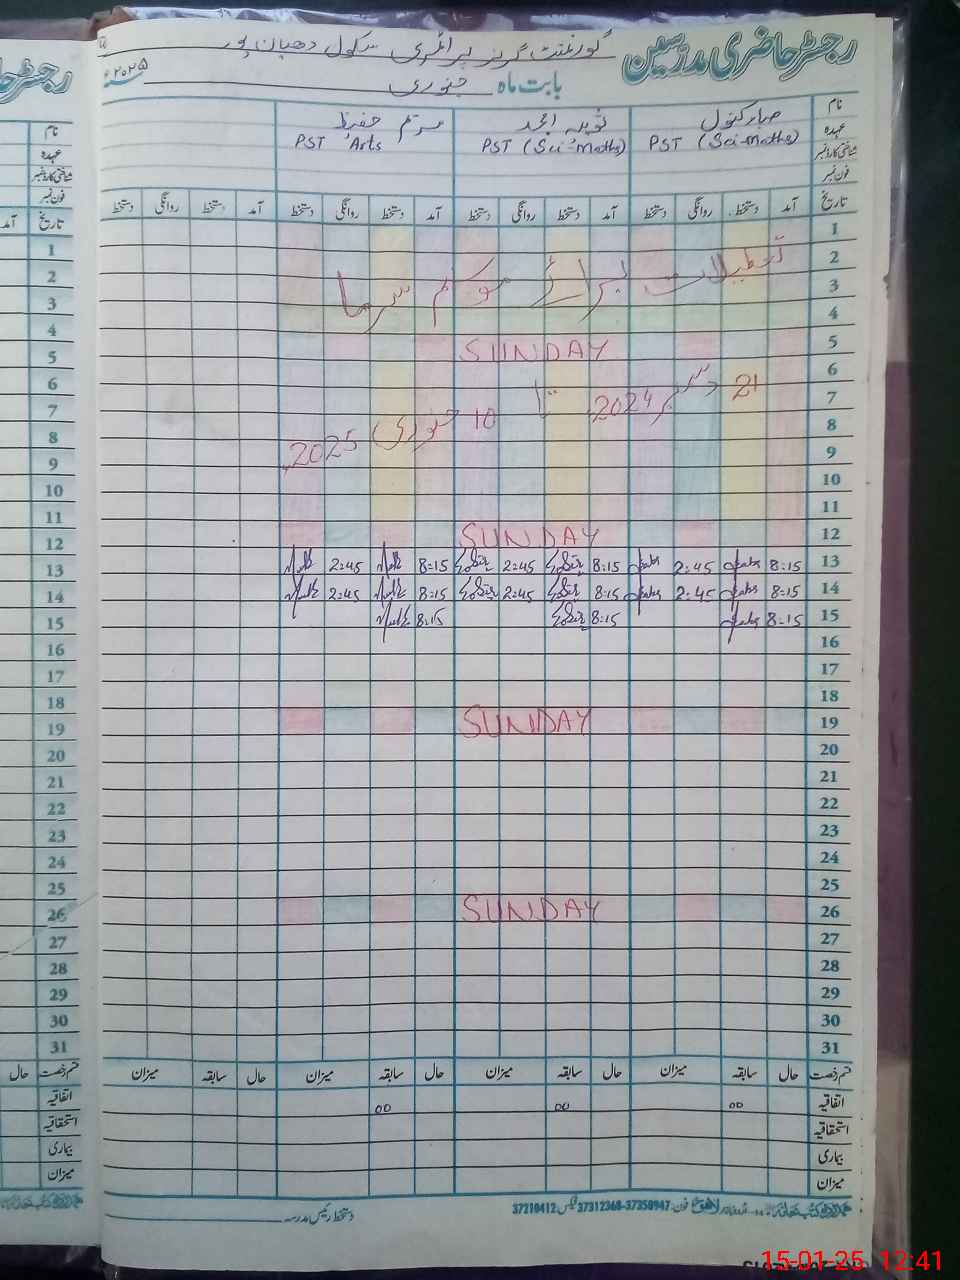 رجسٹر حاضری مدرسین
گورنمنٹ گرلز پرائمری سکول دھیان پور
بابت ماہ جنوری ۲۰۲۵ء
نام صبا کنول ثوبیہ امجد مریم حفیظ
عہدہ PST (Sci-Maths) PST (Sci-Maths) PST Arts
شناختی کارڈ نمبر
فون نمبر
تاریخ آمد دستخط روانگی دستخط آمد دستخط روانگی دستخط آمد دستخط روانگی دستخط آمد دستخط روانگی دستخط
1
2 تعطیلات برائے موسم سرما
3
4
5 SUNDAY
6
7 21 دسمبر 2024 تا 10 جنوری 2025
8
9
10
11
12 SUNDAY
13 8:15 2:45 8:15 2:45 8:15 2:45
14 8:15 2:45 8:15 2:45 8:15 2:45
15 8:15 8:15 8:15
16
17
18
19 SUNDAY
20
21
22
23
24
25
26 SUNDAY
27
28
29
30
31
قسم رخصت حال سابقہ میزان حال سابقہ میزان حال سابقہ میزان حال سابقہ میزان
اتفاقیہ 00 00 00
استحقاقیہ
بیماری
میزان
لاہور فون: 37350947-37312368 فیکس: 37210412
دستخط رئیس مدرسہ
نام
عہدہ
شناختی کارڈ نمبر
فون نمبر
تاریخ آمد
1
2
3
4
5
6
7
8
9
10
11
12
13
14
15
16
17
18
19
20
21
22
23
24
25
26
27
28
29
30
31
قسم رخصت حال
اتفاقیہ
استحقاقیہ
بیماری
میزان
15-01-25 12:41